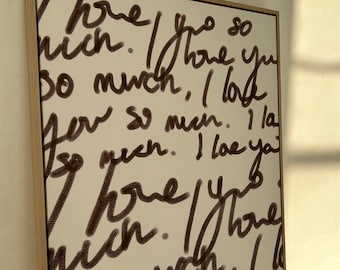 I love you so
much. I love you
so much, I love
you so much. I lo
so much. I love yo
I love you
much. I love
much. I l